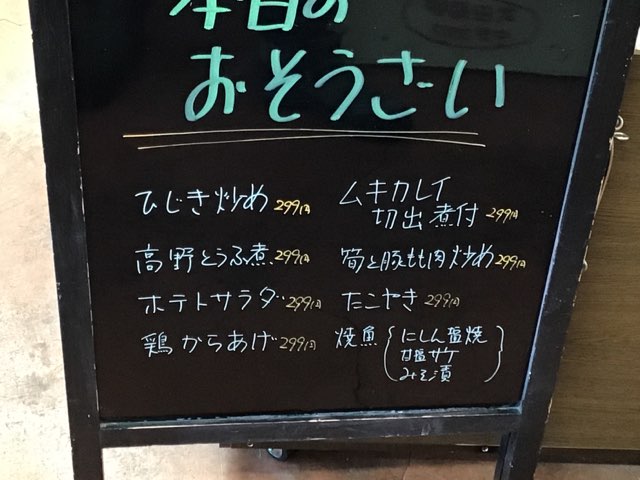 本日の
おそうざい
ひじき炒め 299円
高野とうふ煮 299円
ポテトサラダ 299円
鶏からあげ 299円
ムキカレイ
切出煮付 299円
筍と豚もも肉炒め 299円
たこやき 299円
焼魚 { にしん塩焼
甘塩サケ
みそ漬 }